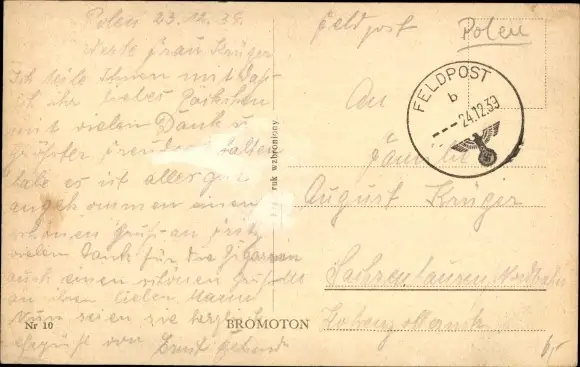 Polen 23.12.39.
Werte Frau Krüger
Ich teile Ihnen mit daß
ich ihr liebes Päckchen
mit vielen Dank u
größter Freude erhalten
habe es ist alles gut
angekommen einen
schönen Gruß an
vielen Dank für die Zigarren
auch einen schönen Gruß
an ihren lieben Mann
Nun seien sie herzlich
gegrüßt von Ernst
Nr 10
BROMOTON
ruk wzbroniony
Feldpost
Polen
FELDPOST
b
---24.12.39
An
Familie
August Krüger
Sachsenhausen Nordbahn
6,-